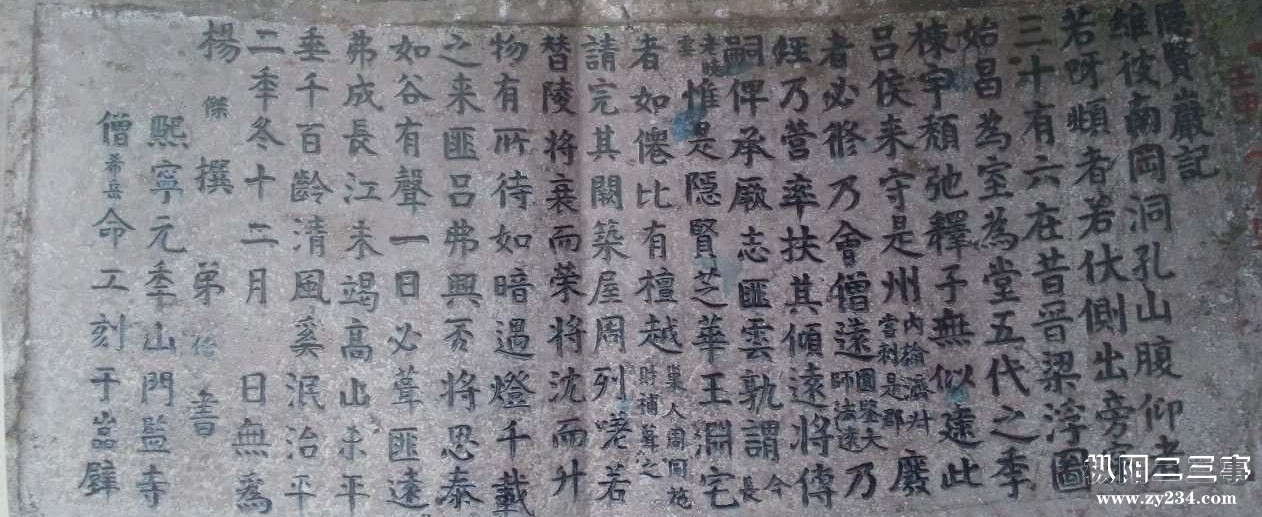 隱賢巖記
維彼南岡洞孔山腹仰者
若呀頫者若伏側出旁
三十有六在昔晋梁浮圖
始昌為室為堂五代之季
棟宇頹弛釋子無似逮此
吕侯来守是州内翰濟叔嘗刺是郡廢
者必修乃會僧遠圓鑒大師法遠乃
經乃营率扶其傾遠將傳
嗣俾承厥志匪雲孰謂今長
老曉雲惟是隱賢芝華王淵宅
者如僊比有檀越巢人周同施財補葺之
請完其闕築屋周列嘵若
替陵将衰而荣将沈而升
物有所待如暗遇燈千載
之来匪吕弗興否将思泰
如谷有聲一日必葺匪遠
弗成長江未竭高山未平
垂千百齡清風奚泯治平
二季冬十二月 日無為
楊傑撰 弟 書
熈寧元季山門監寺
僧希岳命工刻于嵓壁
枞阳二三事
www.zy234.com